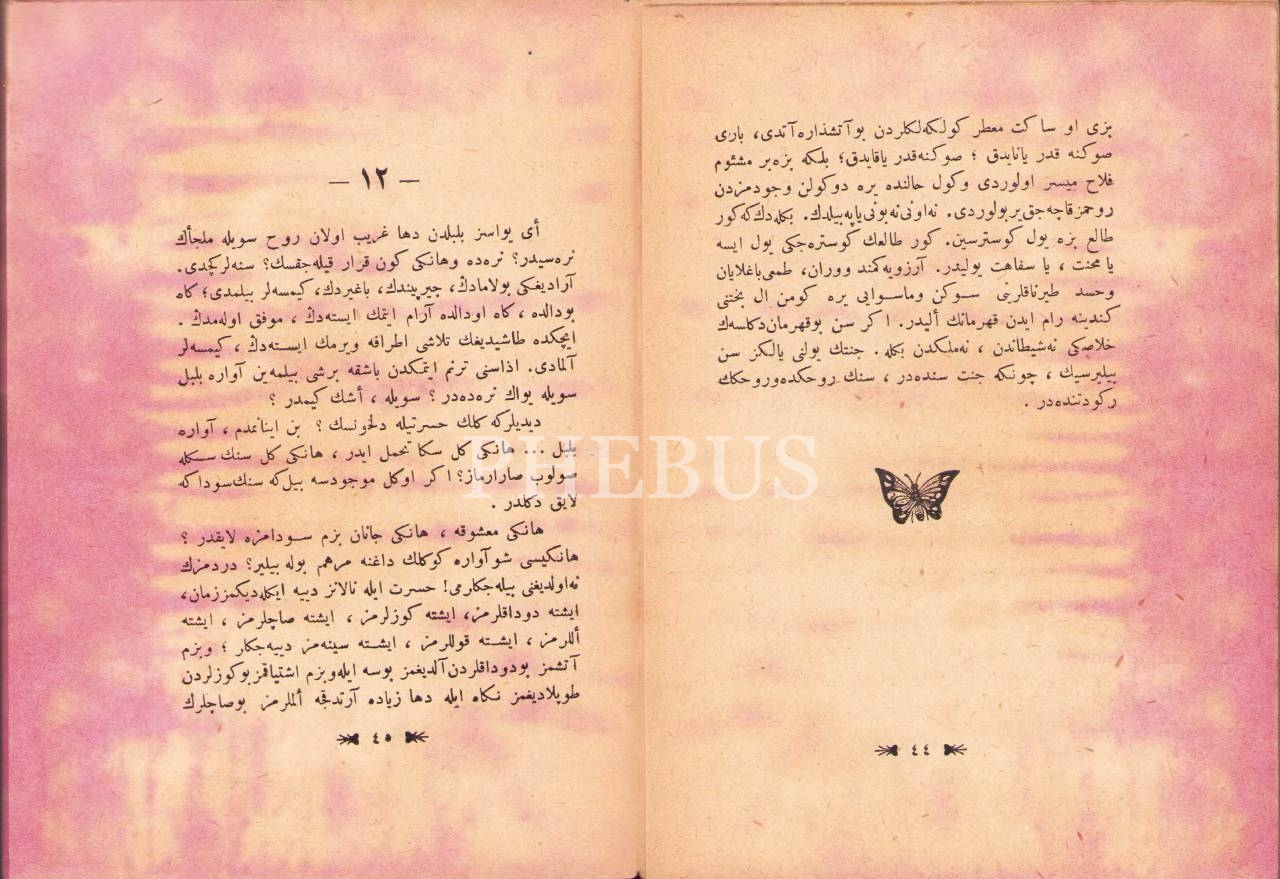 بزی او ساكت معطر كولكه‌لكلردن بوآتشذاره‌آتدی، باری
صوكنه قدر یانایدق ؛ صوكنه‌قدر یاقایدق؛ بلكه بزه‌بر مشئوم
فلاح میسر اولوردی وكول حالنده یره دوكولن وجودمزدن
روحمزقاچه‌جق‌یربولوردی. نه‌اونی‌نه‌بونی‌یاپه‌بیلدك. بكله‌دك‌كه‌كور
طالع بزه یول كوسترسین. كور طالعك كوستره‌جكی یول ایسه
یا محنت ، یا سفاهت یولیدر. آرزویه‌كمند ووران، طمعی‌باغلایان
وحسد طیرناقلرینی سوكن وماسوایی یره كومن ال بختنی
كندینه رام ایدن قهرمانك ألیدر. اكر سن بوقهرمان‌دكلسه‌ك
خلاصكی نه‌شیطاندن ، نه‌ملكدن بكله. جنتك یولنی یالكز سن
بیلیرسیك ، چونكه جنت سنده‌در ، سنك روحكده‌وروحكك
ركودتنده‌در .
٤٤
— ١٢ —
أی یواسز بلبلدن دها غریب اولان روح سویله ملجأك
نره‌سیدر؟ نره‌ده وهانكی كون قرار قیله‌جقسك؟ سنه‌لركچدی.
آرادیغكی بولامادڭ، چیرپیندك، باغیردك، كیمسه‌لر بیلمدی؛ كاه
بودالده ، كاه اودالده آرام ایتمك ایسته‌دڭ ، موفق اوله‌مدڭ .
ایچكده طاشیدیغك تلاشی اطرافه ویرمك ایسته‌دڭ ، كیمسه‌لر
آلمادی. اذاسنی ترنم ایتمكدن باشقه برشی بیلمه‌ین آواره بلبل
سویله یواك نره‌ده‌در ؟ سویله ، أشك كیمدر ؟
دیدیلركه كلك حسرتیله دلخونسك ؟ بن اینانمدم ، آواره
بلبل ... هانكی كل سكا تحمل ایدر ، هانكی كل سنك سسكله
صولوب صارارماز؟ اكر اوكل موجودسه بیل‌كه سنك‌سوداكه
لایق دكلدر .
هانكی معشوقه ، هانكی جانان بزم سودامزه لایقدر ؟
هانكیسی شوآواره كوكلك داغنه مرهم بوله بیلیر؟ دردمزك
نه‌اولدیغنی بیله‌جكلرمی! حسرت ایله نالانز دییه ایكله‌دیكمززمان،
ایشته دوداقلرمز، ایشته كوزلرمز ، ایشته صاچلرمز ، ایشته
أللرمز ، ایشته قوللرمز ، ایشته سینه‌مز دییه‌جكلر ؛ وبزم
آتشمز بودوداقلردن‌آلدیغمز بوسه ایله‌وبزم اشتیاقمزبوكوزلردن
طوپلادیغمز نكاه ایله دها زیاده آرتدقجه ألملرمز بوصاچلرك
٤٥
PHEBUS